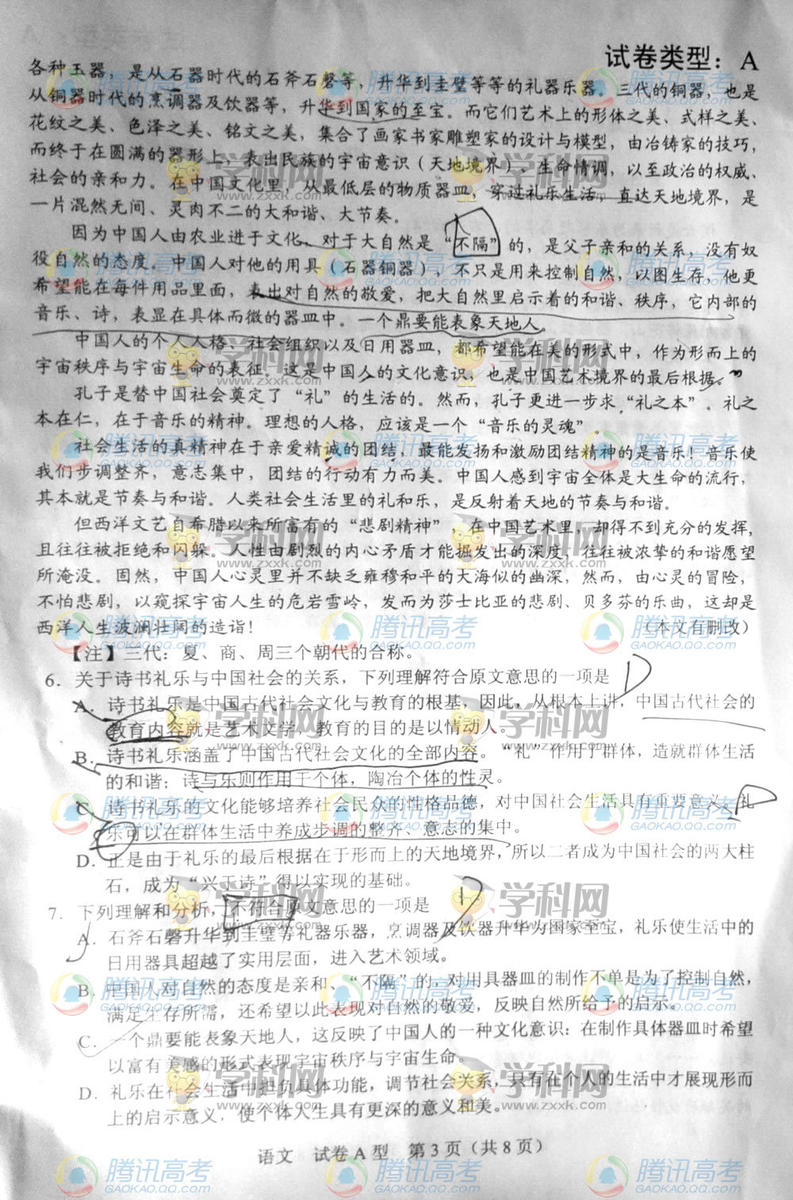 试卷类型：A
各种玉器，是从石器时代的石斧石磬等，升华到圭璧等等的礼器乐器。三代的铜器，也是
从铜器时代的烹调器及饮器等，升华到国家的至宝。而它们艺术上的形体之美、式样之美、
花纹之美、色泽之美、铭文之美，集合了画家书家雕塑家的设计与模型，由冶铸家的技巧，
而终于在圆满的器形上，表出民族的宇宙意识（天地境界），生命情调，以至政治的权威、
社会的亲和力。在中国文化里，从最低层的物质器皿，穿过礼乐生活，直达天地境界，是
一片混然无间、灵肉不二的大和谐、大节奏。
因为中国人由农业进于文化，对于大自然是“不隔”的，是父子亲和的关系，没有奴
役自然的态度。中国人对他的用具（石器铜器），不只是用来控制自然，以图生存，他更
希望能在每件用品里面，表出对自然的敬爱，把大自然里启示着的和谐、秩序，它内部的
音乐、诗，表显在具体而微的器皿中。一个鼎要能表象天地人。
中国人的个人人格，社会组织以及日用器皿，都希望能在美的形式中，作为形而上的
宇宙秩序与宇宙生命的表征。这是中国人的文化意识，也是中国艺术境界的最后根据。
孔子是替中国社会奠定了“礼”的生活的。然而，孔子更进一步求“礼之本”。礼之
本在仁，在于音乐的精神。理想的人格，应该是一个“音乐的灵魂”。
社会生活的真精神在于亲爱精诚的团结，最能发扬和激励团结精神的是音乐！音乐使
我们步调整齐，意志集中，团结的行动有力而美。中国人感到宇宙全体是大生命的流行，
其本就是节奏与和谐。人类社会生活里的礼和乐，是反射着天地的节奏与和谐。
但西洋文艺自希腊以来所富有的“悲剧精神”，在中国艺术里，却得不到充分的发挥，
且往往被拒绝和闪躲。人性由剧烈的内心矛盾才能掘发出的深度，往往被浓挚的和谐愿望
所淹没。固然，中国人心灵里并不缺乏雍穆和平的大海似的幽深，然而，由心灵的冒险，
不怕悲剧，以窥探宇宙人生的危岩雪岭，发而为莎士比亚的悲剧、贝多芬的乐曲，这却是
西洋人生波澜壮阔的造诣！
（本文有删改）
【注】三代：夏、商、周三个朝代的合称。
6．关于诗书礼乐与中国社会的关系，下列理解符合原文意思的一项是
A．诗书礼乐是中国古代社会文化与教育的根基，因此，从根本上讲，中国古代社会的
教育内容就是艺术文学，教育的目的是以情动人。
B．诗书礼乐涵盖了中国古代社会文化的全部内容。“礼”作用于群体，造就群体生活
的和谐；诗与乐则作用于个体，陶冶个体的性灵。
C．诗书礼乐的文化能够培养社会民众的性格品德，对中国社会生活具有重要意义，礼
乐可以在群体生活中养成步调的整齐、意志的集中。
D．正是由于礼乐的最后根据在于形而上的天地境界，所以二者成为中国社会的两大柱
石，成为“兴于诗”得以实现的基础。
7．下列理解和分析，不符合原文意思的一项是
A．石斧石磬升华到圭璧等礼器乐器，烹调器及饮器升华为国家至宝，礼乐使生活中的
日用器具超越了实用层面，进入艺术领域。
B．中国人对自然的态度是亲和、“不隔”的，对用具器皿的制作不单是为了控制自然，
满足生存所需，还希望以此表现对自然的敬爱，反映自然所给予的启示。
C．一个鼎要能表象天地人，这反映了中国人的一种文化意识：在制作具体器皿时希望
以富有美感的形式表现宇宙秩序与宇宙生命。
D．礼乐在社会生活中担负具体功能，调节社会关系，只有在个人的生活中才展现形而
上的启示意义，使个体人生具有更深的意义和美。
语文 试卷A型 第3页（共8页）
学科网
www.zxxk.com
腾讯高考
GAOKAO.QQ.COM